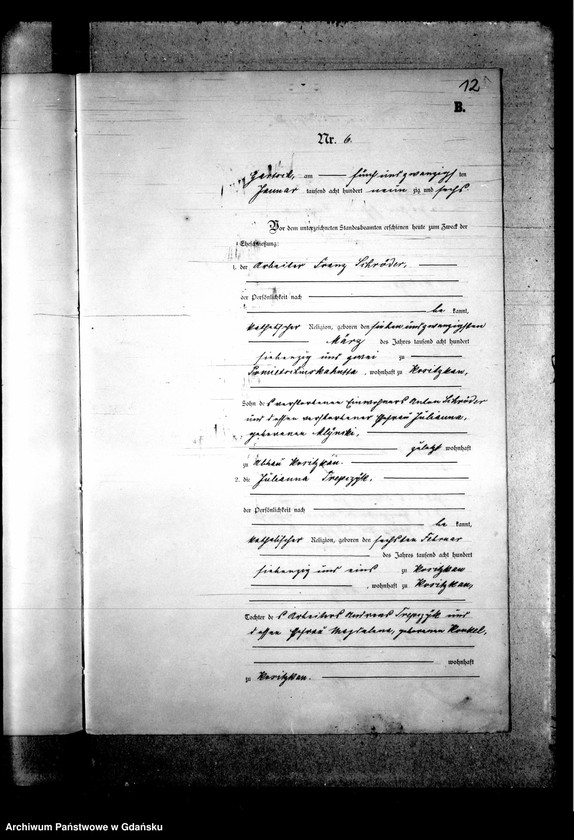 12
B.
Nr. 6.
am fünfundzwanzigsten ten
Januar tausend acht hundert neun zig und sechs.
Vor dem unterzeichneten Standesbeamten erschienen heute zum Zweck der
Eheschließung:
1. der Arbeiter Franz Schröder,
der Persönlichkeit nach
be kannt,
katholischer Religion, geboren den siebenundzwanzigsten
März des Jahres tausend acht hundert
siebenzig und zwei zu
, wohnhaft zu
Sohn des verstorbenen Einwohners Anton Schröder
und dessen verstorbener Ehefrau Julianna,
geborenen Mlynski,
zuletzt wohnhaft
zu Abbau
2. die Julianna
der Persönlichkeit nach
be kannt,
katholischer Religion, geboren den sechsten Februar
des Jahres tausend acht hundert
siebenzig und eins zu
, wohnhaft zu
Tochter des Arbeiters Andreas und
dessen Ehefrau Magdalena, geborenen
wohnhaft
zu
Archiwum Państwowe w Gdańsku